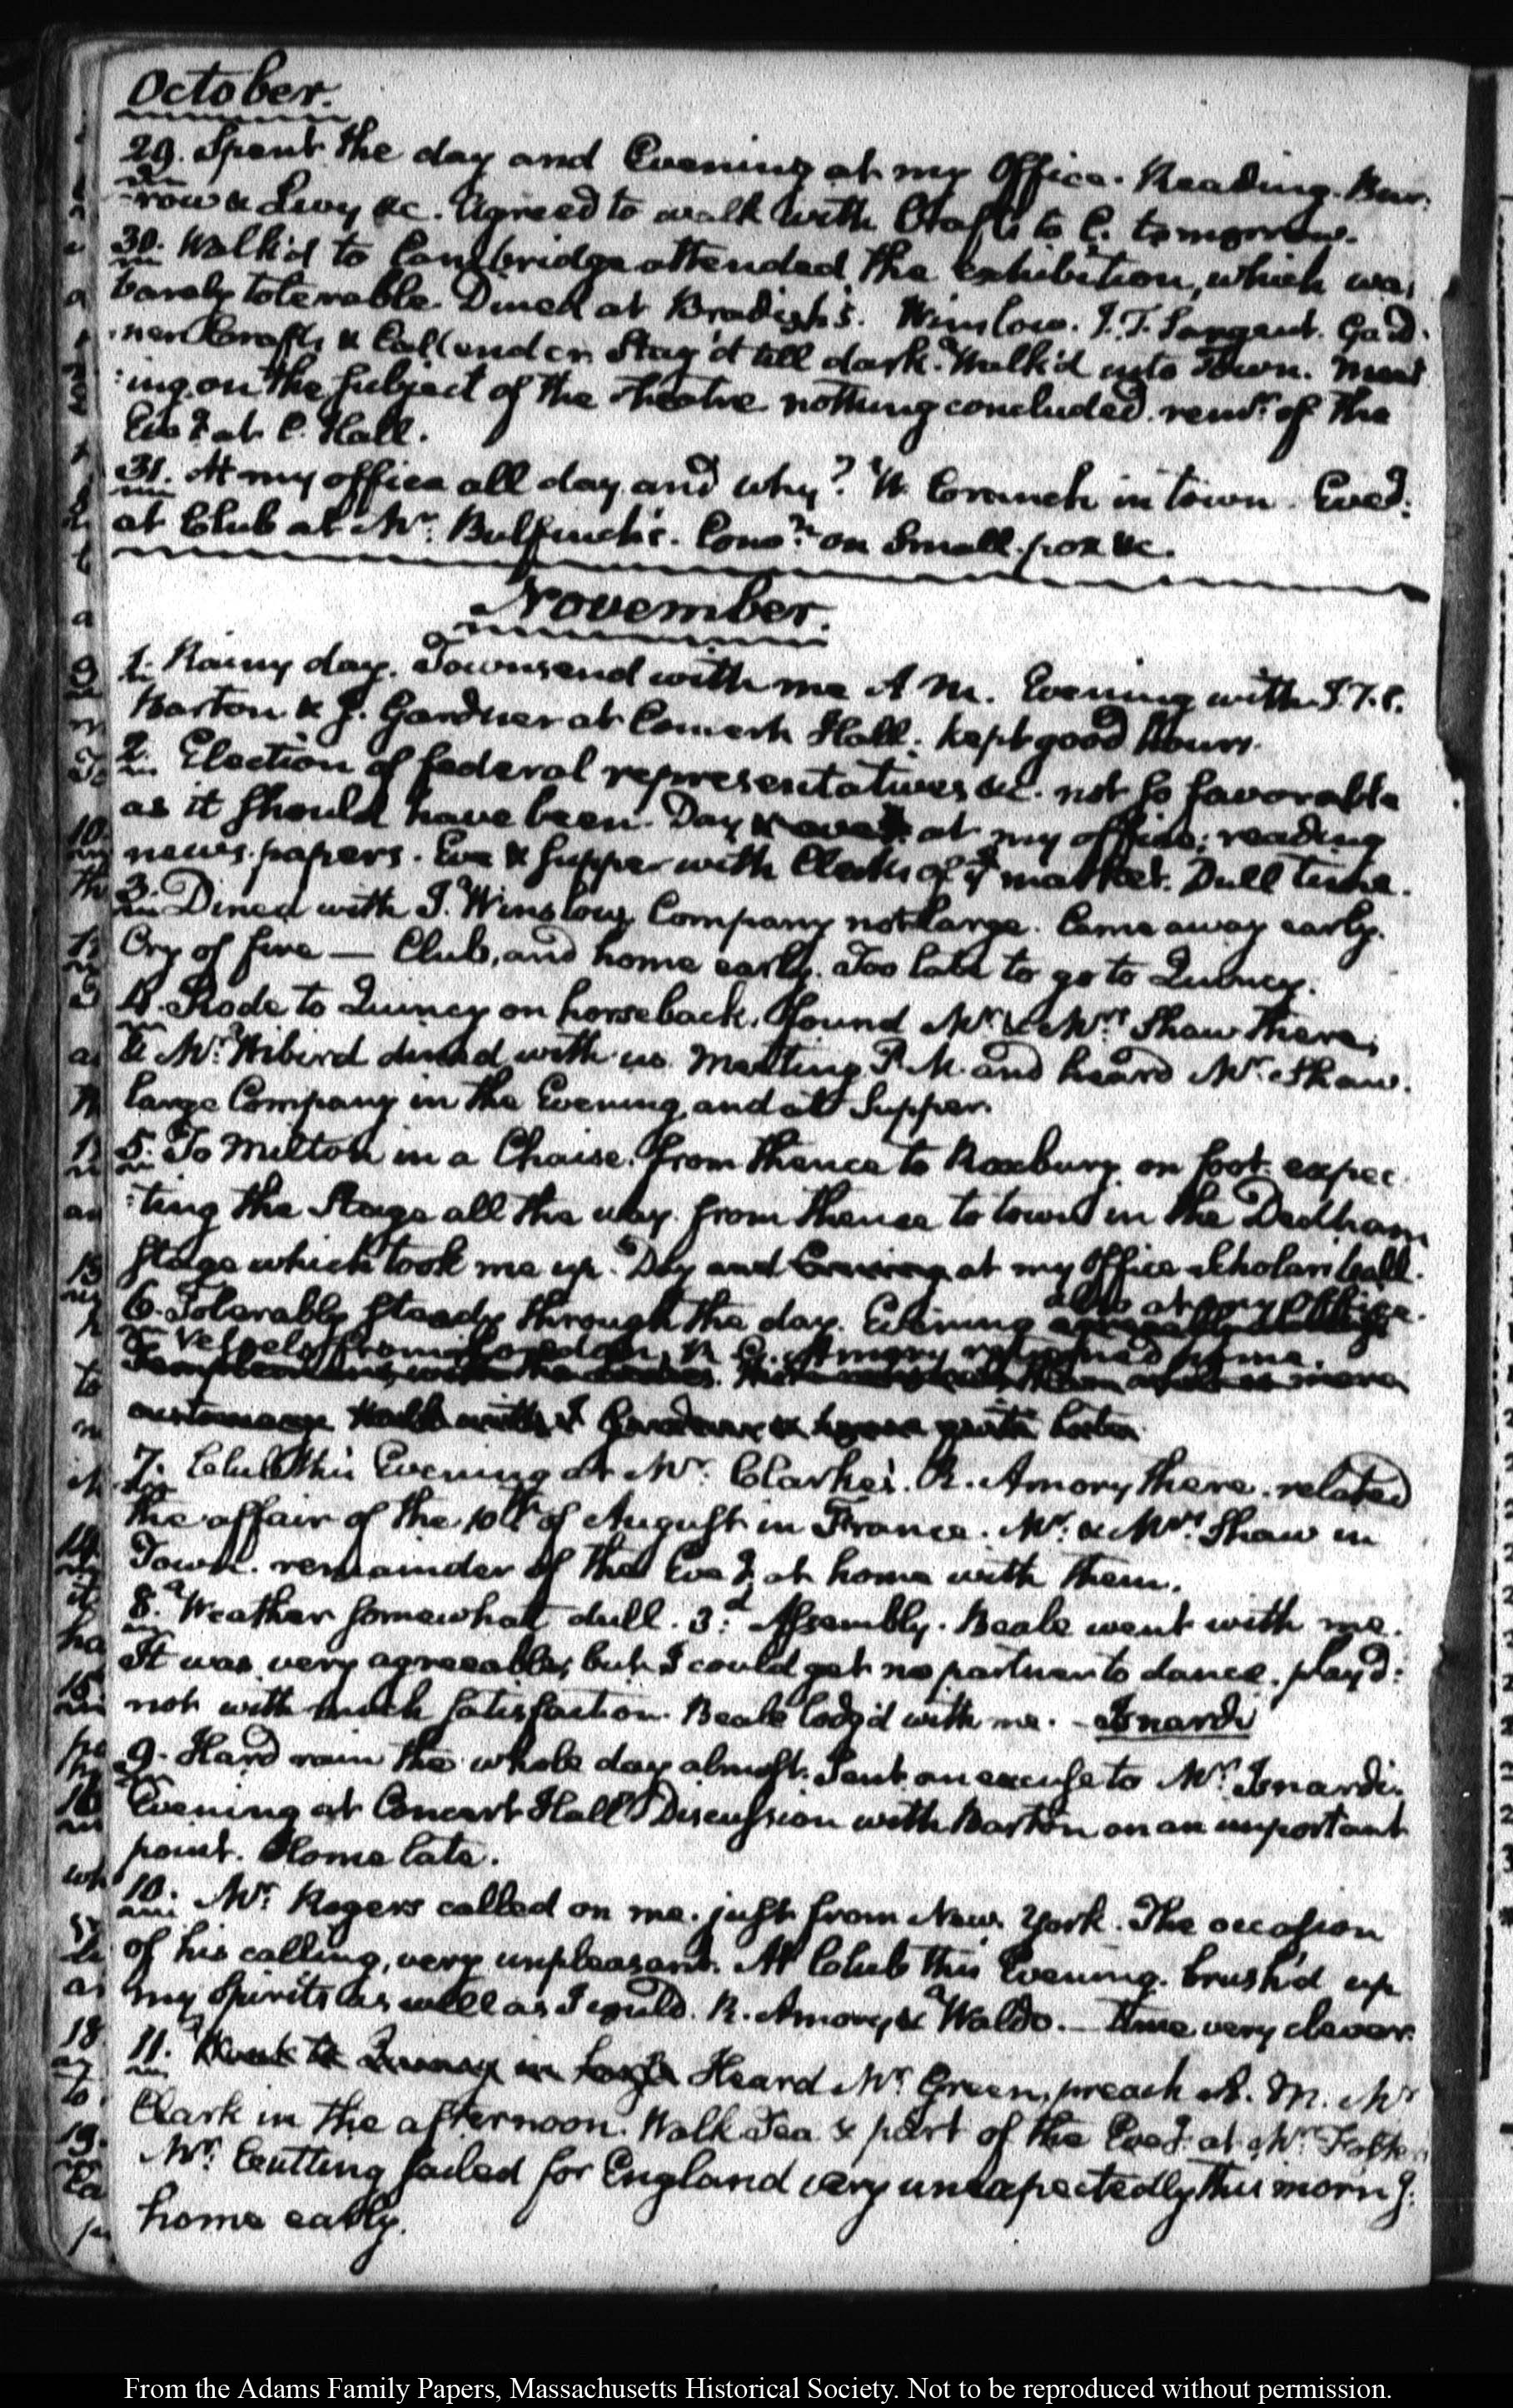 October.
29. Spent the day and Evening at my Office. Reading. Bur:
-row & Livy &c. Agreed to walk with Crafts to C. tomorrow.
30. Walk'd to Cambridge attended the exhibition, which was
barely tolerable. Dined at Bradish's. Winslow. J. T. Sargent. Gard:
:ner Crafts & Callender. Stay'd till dark. Walk'd into Town. Meet
:ing on the subject of the theatre nothing concluded. remr. of the
Eveg. at C. Hall.
31. At my office all day and why? W. Cranch in town. Eveg:
at Club at Mr. Bulfinch's. Convn. on Small-pox &c.
November.
1. Rainy day. Townsend with me A M. Evening with J. T. S.
Barton & J. Gardner at Concert Hall. kept good hours.
2. Election of federal representatives &c. not so favorable
as it should have been. Day at my office; reading
news-papers. Eve & supper with Clerks of ye market. Dull time.
3. Dined with J. Winslow, Company not large. Came away early.
Cry of fire — Club, and home early. Too late to go to Quincy.
4. Rode to Quincy on horseback. found Mr. & Mrs. Shaw there,
& Mr. Wibird dined with us. Meeting P. M. and heard Mr. Shaw.
large Company in the Evening, and at Supper.
5. To Milton in a Chaise. from thence to Roxbury on foot expec
:ting the Stage all the way. from thence to town in the Dedham
stage which took me up. Day and Evening at my office scholars ball.
6. Tolerably steady through the day. Evening also at my Office.
Vessels from London, R. Amory returned home.
7. Club this Evening at Mr. Clarke's. R. Amory there. related
the affair of the 10th of August in France. Mr. & Mrs. Shaw in
Town. remainder of the Eveg. at home with them.
8. Weather somewhat dull. 3d. Assembly. Beale went with me.
It was very agreeable, but I could get no partner to dance. play'd:
not with much satisfaction. Beale lodg'd with me. - Isnardi
9. Hard rain the whole day almost. Sent an excuse to Mr. Isnardi.
Evening at Concert Hall. Discussion with Barton on an important
point. Home late.
10. Mr. Rogers called on me. just from New York. The occasion
of his calling, very unpleasant. At Club this Evening. brush'd up
my Spirits as well as I could. R. Amory & Waldo. — time very clever.
11. Heard Mr. Green, preach A. M. Mr
Clark in the afternoon. Walk Tea & part of the Eveg. at Mr. Foster
Mr. Cutting sailed for England very unexpectedly this morng.
home early.
From the Adams Family Papers, Massachusetts Historical Society. Not to be reproduced without permission.